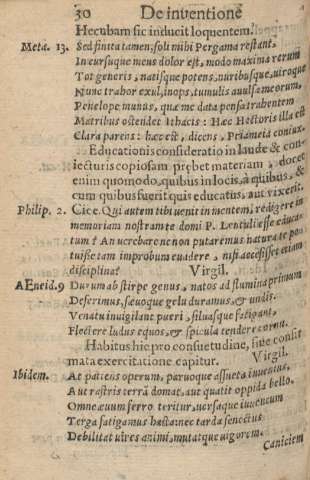 30 De inuentione
Hecubam sic inducit loquentem.
Meta. 13. Sed finita tamen, soli mihi Pergama restant,
In cursuque meus dolor est, modo maxima rerum
Tot generis, natisque potens, nuribusque, uiroque
Nunc trahor exul, inops, tumulis auulsa meorum,
Penelope munus, quæ me data pensa trahentem
Matribus ostendet Ithacis: Hæc Hectoris illa est
Clara parens: hæc est, dicens, Priameia coniux.
Educationis consideratio in laude & con-
iecturis copiosam prębet materiam, docet
enim quomodo, quibus in locis, à quibus, &
cum quibus fuerit quis educatus, aut vixerit.
Philip. 2. Cice. Qui autem tibi venit in mentem, redigere in
memoriam nostram te domi P. Lentuli esse educa-
tum? An uerebare ne non putaremus natura te po-
tuisse tam improbum euadere, nisi accessisset etiam
disciplina? Virgil.
AEneid. 9 Durum ab stirpe genus, natos ad flumina primum
Deferimus, sæuoque gelu duramus, & undis.
Venatu inuigilant pueri, siluasque fatigant,
Flectere ludus equos, & spicula tendere cornu.
Habitus hic pro consuetudine, siue consum
mata exercitatione capitur. Virgil.
Ibidem. At patiens operum, paruoque assueta iuuentus,
Aut rastris terrã domat, aut quatit oppida bello.
Omne æuum ferro teritur, uersaque iuuencum
Terga fatigamus hasta: nec tarda senectus
Debilitat uires animi, mutatque uigorem.
Caniciem